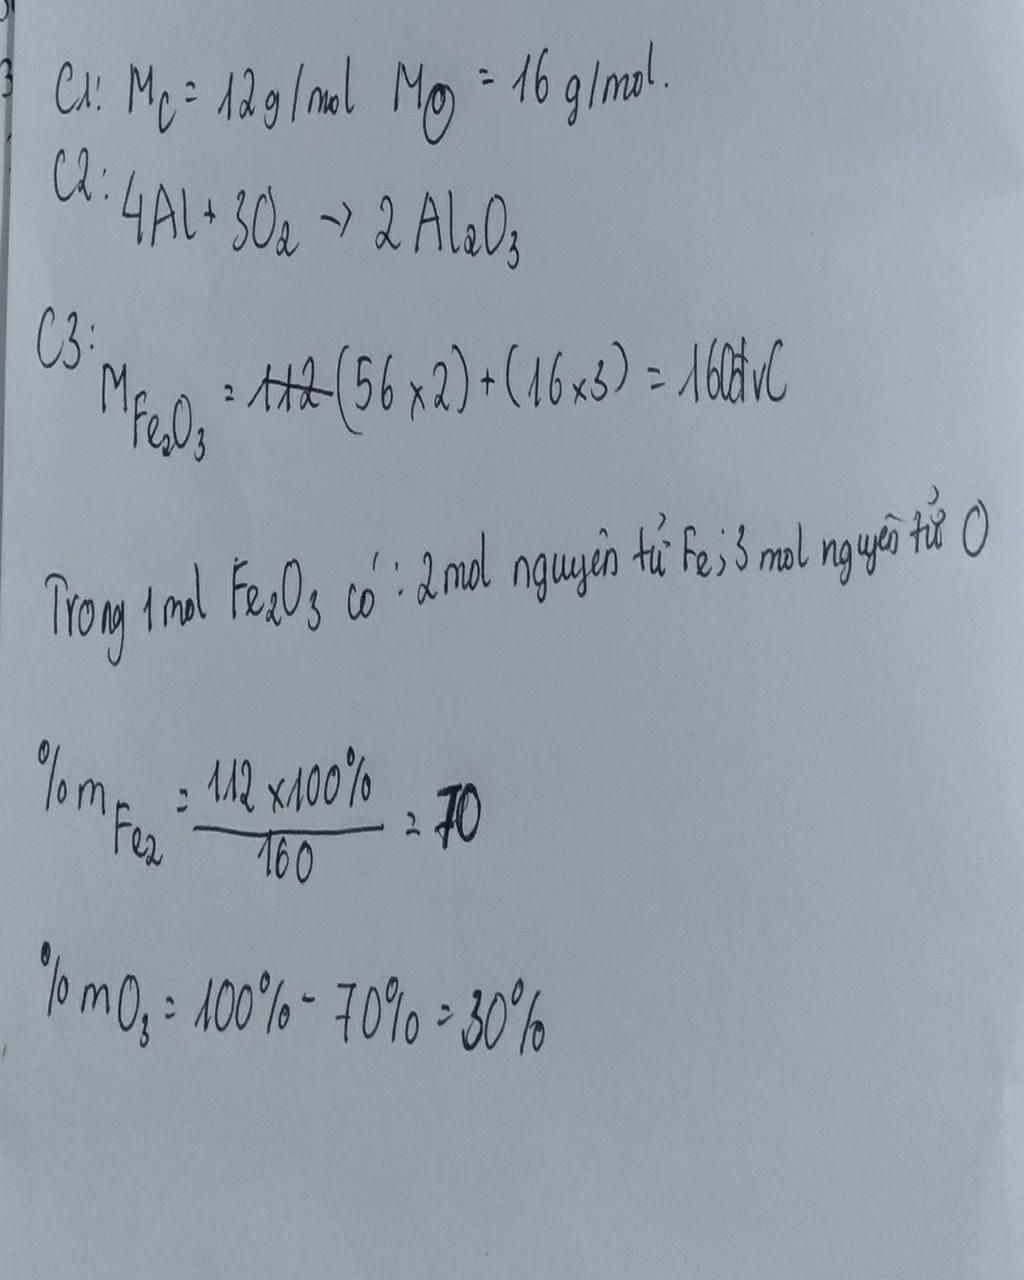 C1: Mc = 12g/mol MO = 16 g/mol.
C2: 4Al + 3O₂ → 2Al₂O₃
C3: MFe₂O₃ = 112 (56 x 2) + (16 x 3) = 160đvC
Trong 1 mol Fe₂O₃ có: 2 mol nguyên tử Fe; 3 mol nguyên tử O
%mFe₂ = 112 x 100% / 160 = 70
%mO₃ = 100% - 70% = 30%